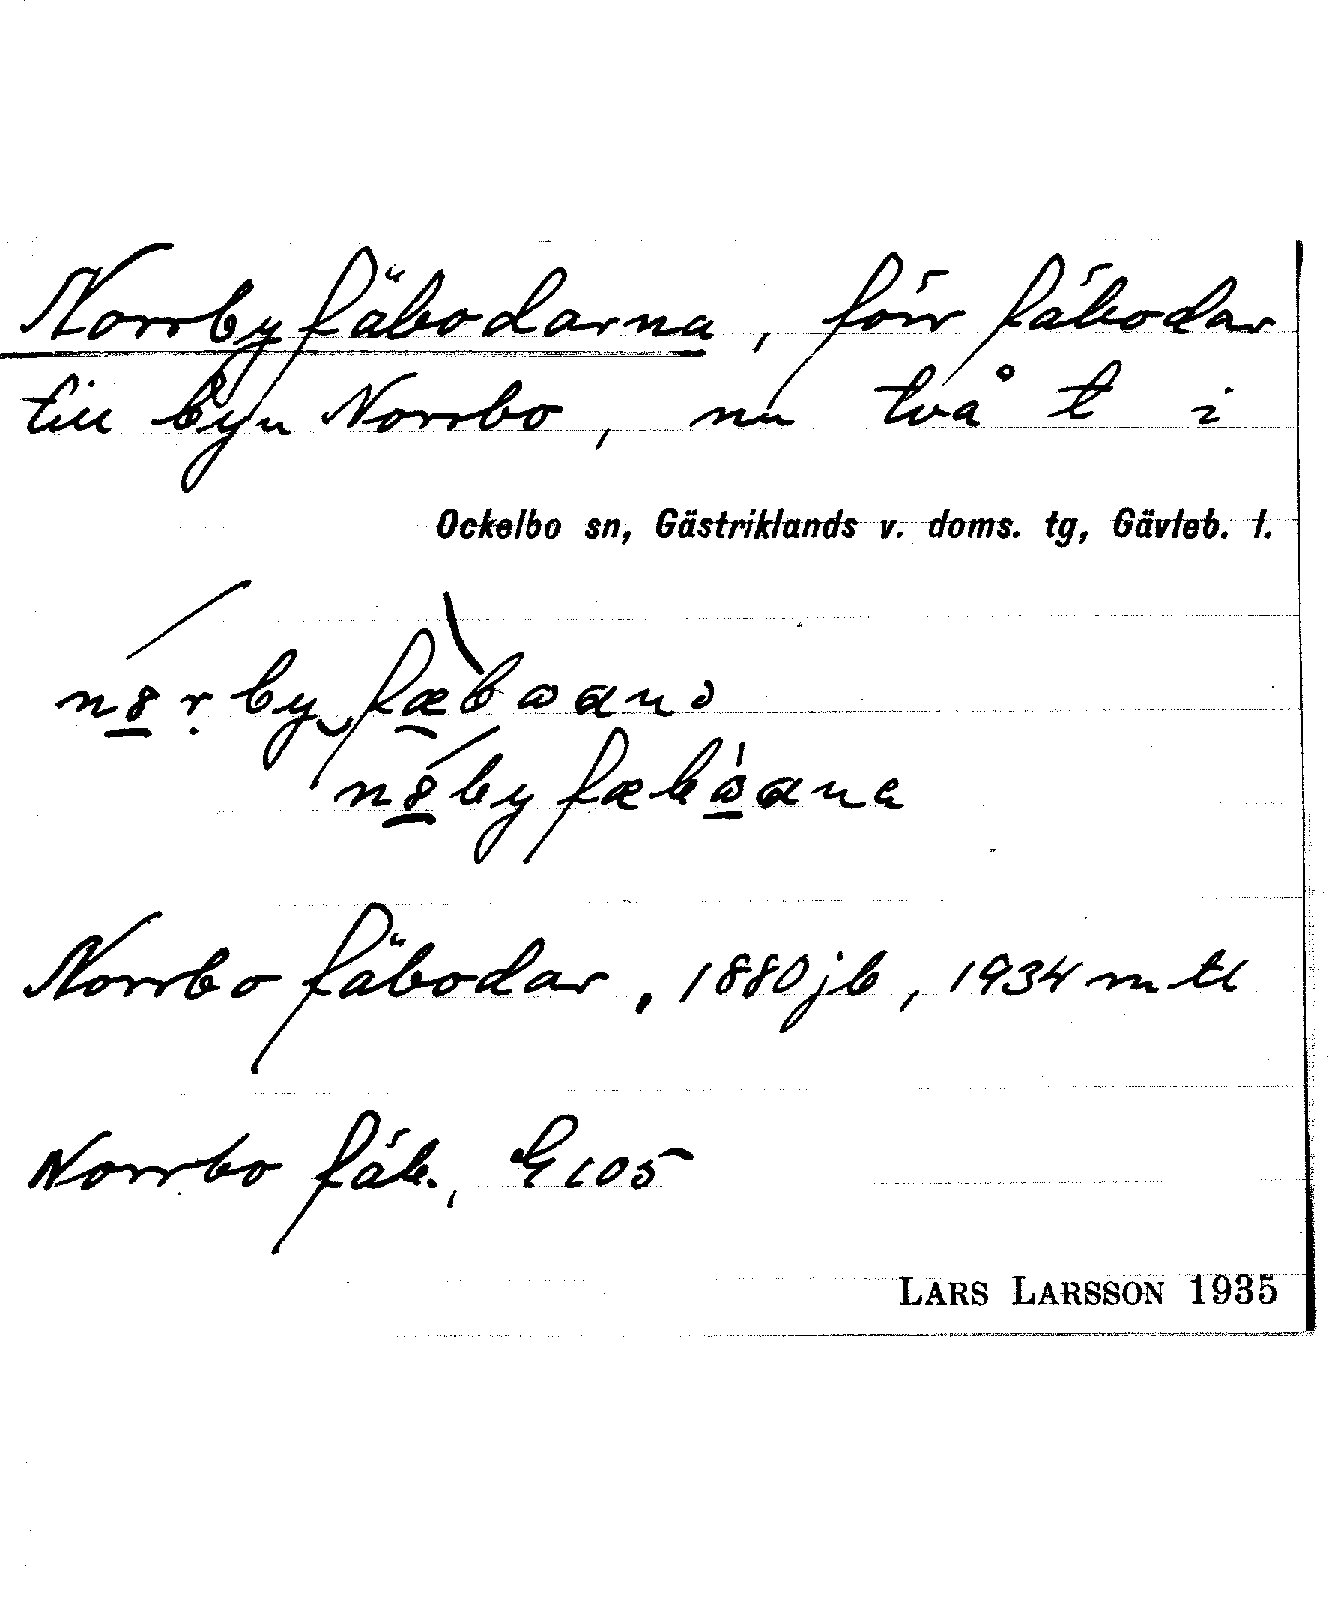 Norrbyfäbodarna, förr fäbodar
till byn Norrbo, nu två t i
Ockelbo sn, Gästriklands v. doms. tg, Gävleb. l.
Norrbo fäbodar, 1880 jb, 1934 mtl
Norrbo fäb., E 105
LARS LARSSON 1935